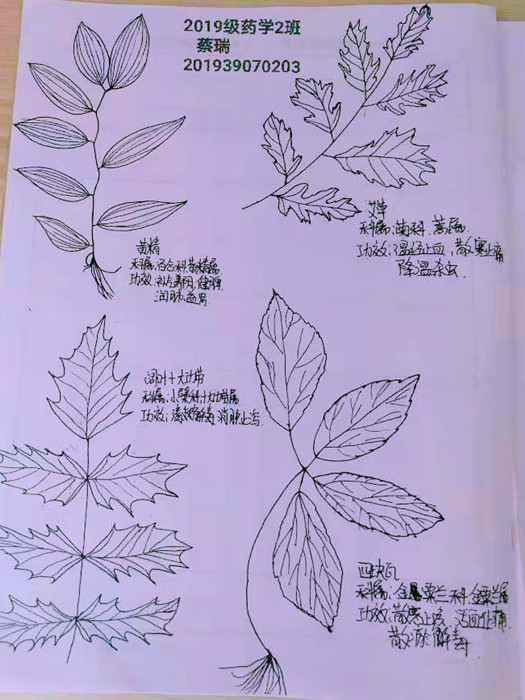 2019级药学2班
蔡瑞
201939070203
黄精
科属:百合科.黄精属
功效:补气养阴,健脾
润肺益肾
艾草
科属:菊科.蒿属
功效:温经止血,散寒止痛
降湿杀虫
阔叶十大功劳
科属:小檗科十大功劳属
功效:清热解毒,消肿止
四块瓦
科属:金粟兰科.金粟兰属
功效:散寒止咳,活血止痛
散瘀解毒